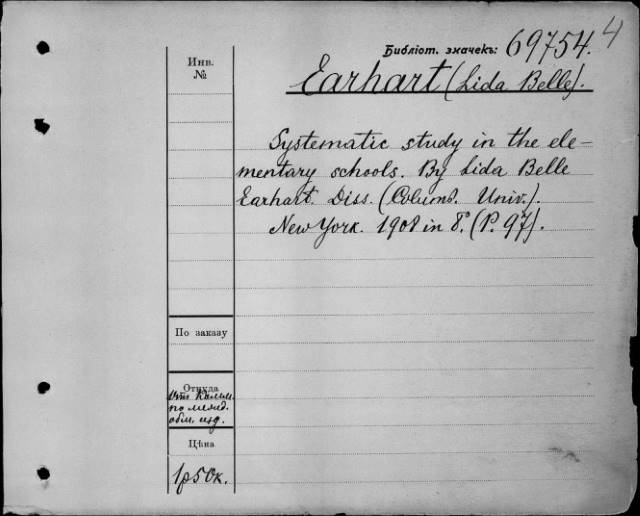 4
Библіот. значекъ: 69754.
Инв.
№
Earhart (Lida Belle).
Systematic study in the ele-
mentary schools. By Lida Belle
Earhart. Diss. (Columb. Univ.).
New York. 1908 in 8°. (P. 97).
По заказу
Откуда
по межд.
обм. изд.
Цѣна
1р50к.